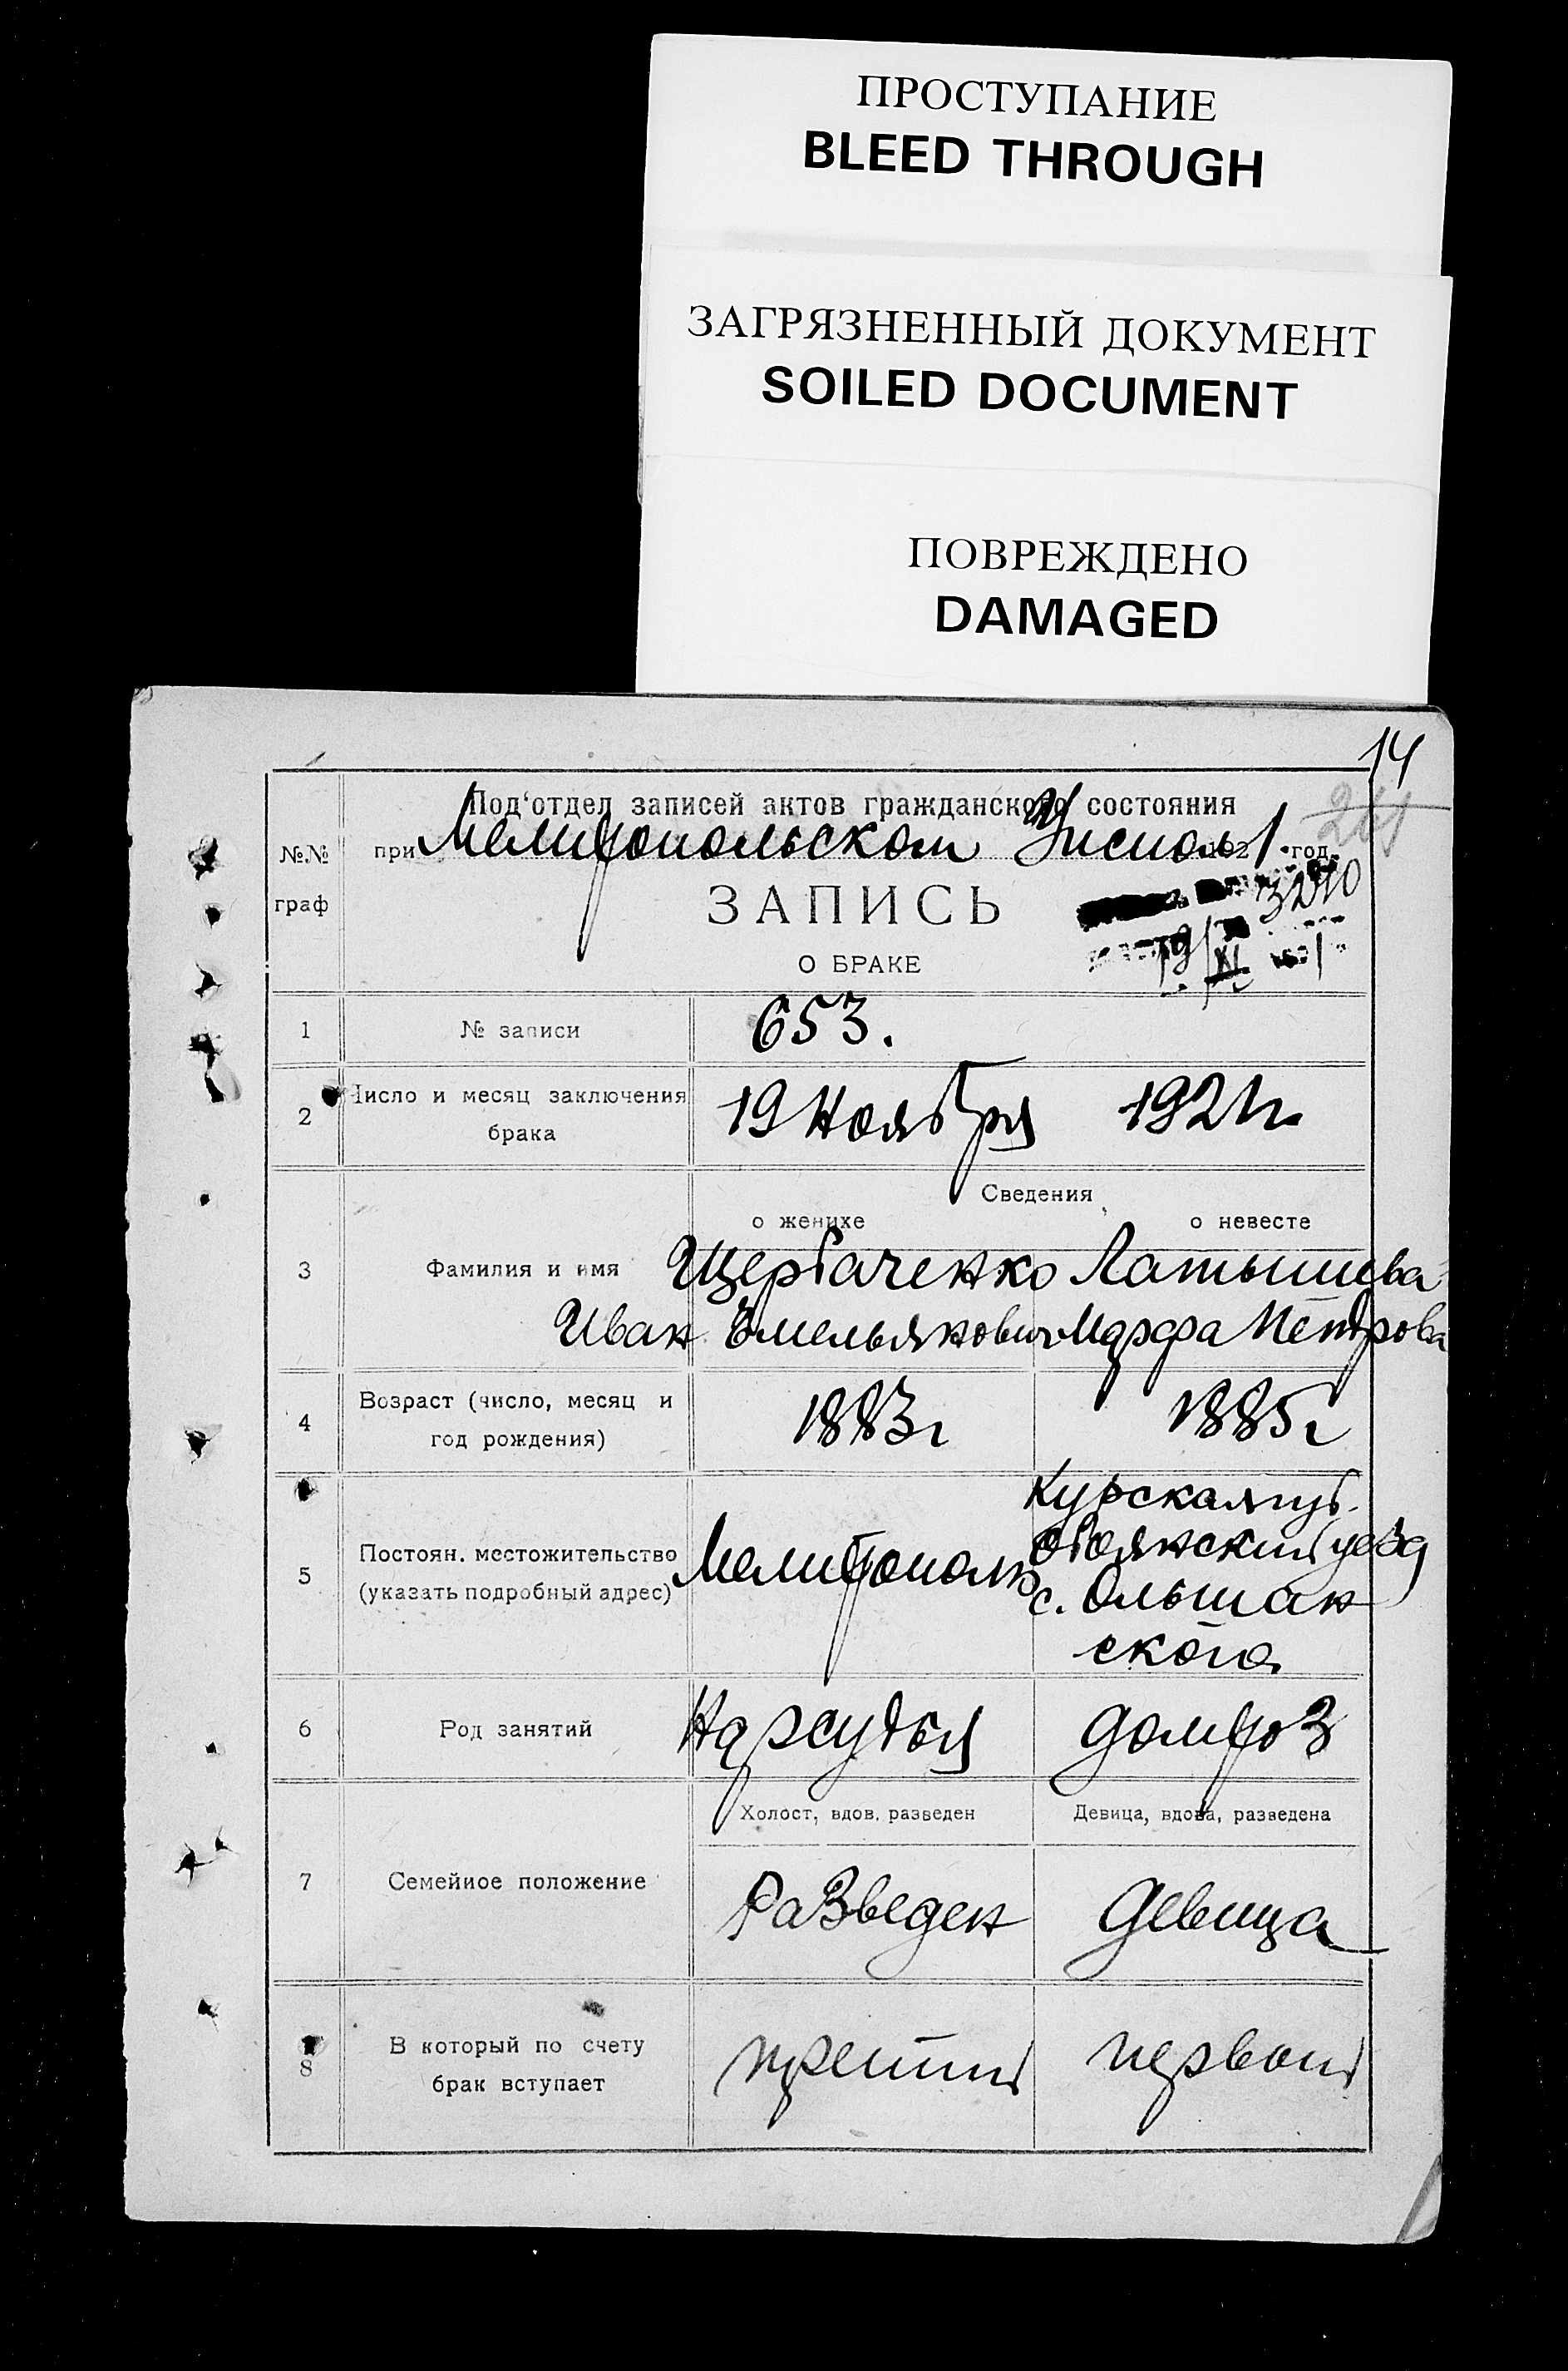 ПРОСТУПАНИЕ
BLEED THROUGH
ЗАГРЯЗНЕННЫЙ ДОКУМЕНТ
SOILED DOCUMENT
ПОВРЕЖДЕНО
DAMAGED
14
261
Под'отдел записей актов гражданского состояния
№№ граф
при Мелитопольском Уисполк 1921 год.
3210
ЗАПИСЬ
19/XI
О БРАКЕ
1 № записи 653.
2 Число и месяц заключения брака 19 Ноября 1921 г.
Сведения
о женихе о невесте
3 Фамилия и имя Щербаченко Латышева
Иван Емельянович Марфа Петрова
4 Возраст (число, месяц и год рождения) 1883 г 1885 г
5 Постоян. местожительство (указать подробный адрес) Мелитополь Курская губ.
обоянский уезд
с. Ольшан
ского
6 Род занятий Нарсудья домхоз
Холост, вдов. разведен Девица, вдова, разведена
7 Семейное положение Разведен девица
8 В который по счету брак вступает третий первый